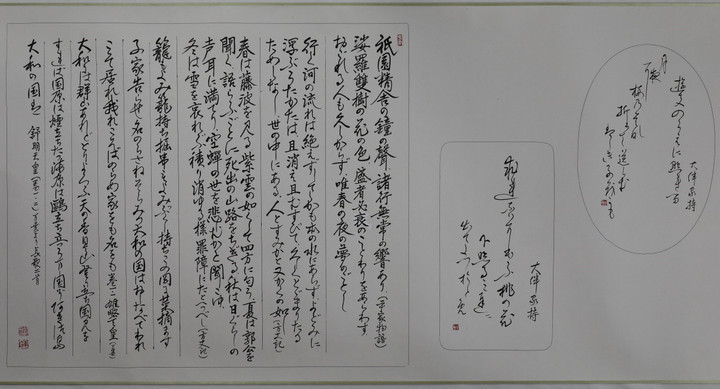 大伴家持
雪のうへに照れる
月夜に
梅の花
折りて送らむ
大伴家持
桃の花
下照る道に
祇園精舎の鐘の聲 諸行無常の響あり(平家物語)
娑羅雙樹の花の色 盛者必衰のことわりをあらわす
おごれる人も久しからず 唯春の夜の夢のごとし
行く河の流れは絶えずしてしかも本の水にあらず よどみに
浮ぶうたかたは且消え且むすびて久しくとどまりたる
ためしなし 世の中にある人とすみかと又かくの如し(方丈記)
春は藤波を見る 紫雲の如くして西方に匂う 夏は郭公を
聞く 語らふごとに死出の山路をちぎる 秋は日ぐらしの
声耳に満てり 空蝉の世を悲しむかと聞こゆ
冬は雪を哀れぶ 積り消ゆる様罪障にたとへつべし(方丈記)
籠もよみ籠持ち掘串もよみぶくし持ちこの岡に菜摘ます
子 家告らせ名のらさねそらみつ大和の国はおしなべてわれ
こそ居れ我れこそはのらめ家をも名をも 巻一 雄略天皇
大和には群山あれどとりよろふ天の香具山登り立ち国見を
すれば国原は煙立ち立つ海原は鷗立ち立つうまし国ぞあきつ島
大和の国は 舒明天皇(巻一・二)万葉集より長歌二首